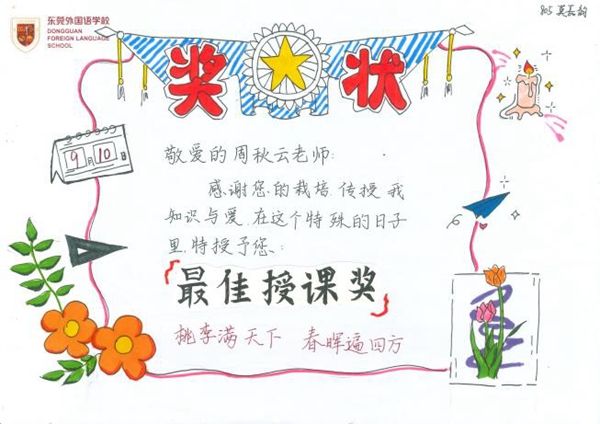 东莞外国语学校
DONGGUAN
FOREIGN LANGUAGE
SCHOOL
奖状
9月10日
敬爱的周秋云老师:
感谢您的栽培,传授我
知识与爱.在这个特殊的日子
里,特授予您:
最佳授课奖
桃李满天下 春晖遍四方